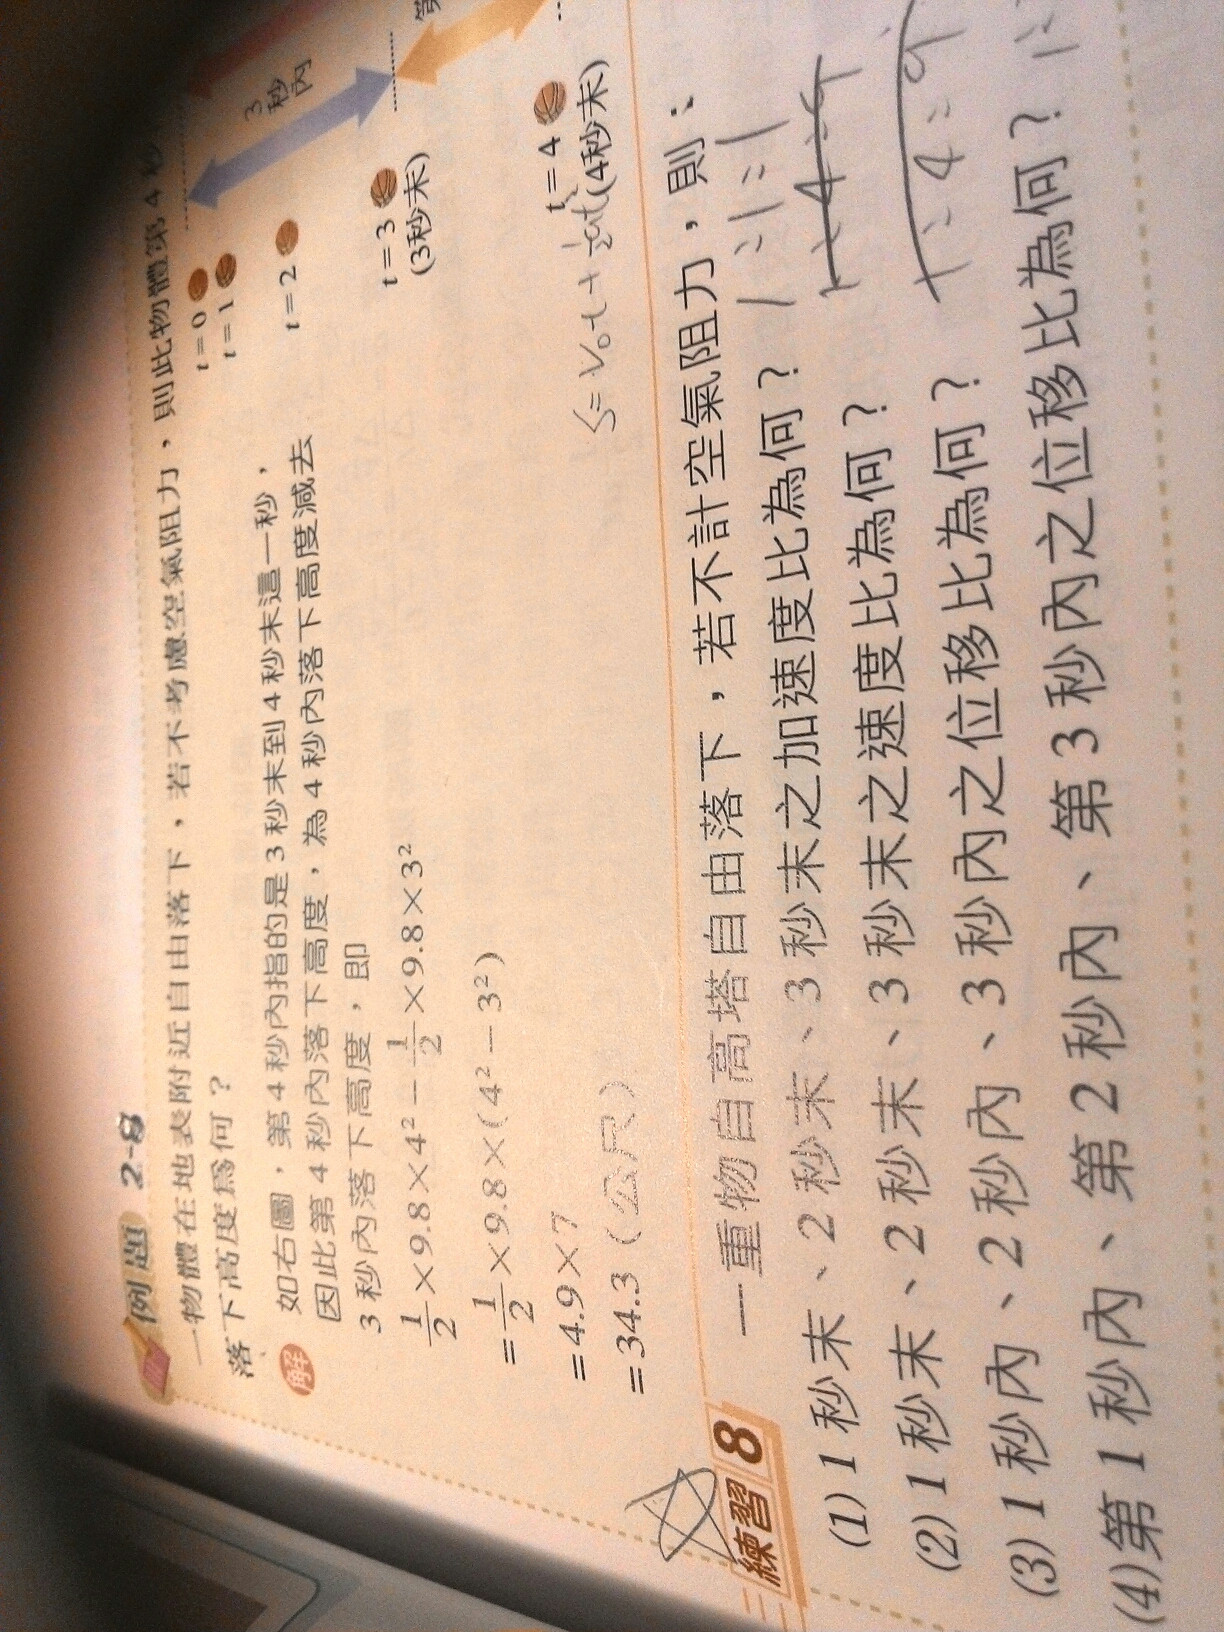 例題 2-8
一物體在地表附近自由落下，若不考慮空氣阻力，則此物體第 4 秒
落下高度為何？
解 如右圖，第 4 秒內指的是 3 秒末到 4 秒末這一秒，
因此第 4 秒內落下高度，為 4 秒內落下高度減去
3 秒內落下高度，即
1/2×9.8×4²－1/2×9.8×3²
=1/2×9.8×(4²－3²)
=4.9×7
=34.3（公尺）
t=0
t=1
t=2
t=3
(3秒末)
t=4
(4秒末)
3
秒
內
第
S=V₀t+½at
練習 8
一重物自高塔自由落下，若不計空氣阻力，則：
(1) 1 秒末、2 秒末、3 秒末之加速度比為何？ 1:1:1
(2) 1 秒末、2 秒末、3 秒末之速度比為何？ 1:4:9
(3) 1 秒內、2 秒內、3 秒內之位移比為何？ 1:4:9
(4) 第 1 秒內、第 2 秒內、第 3 秒內之位移比為何？